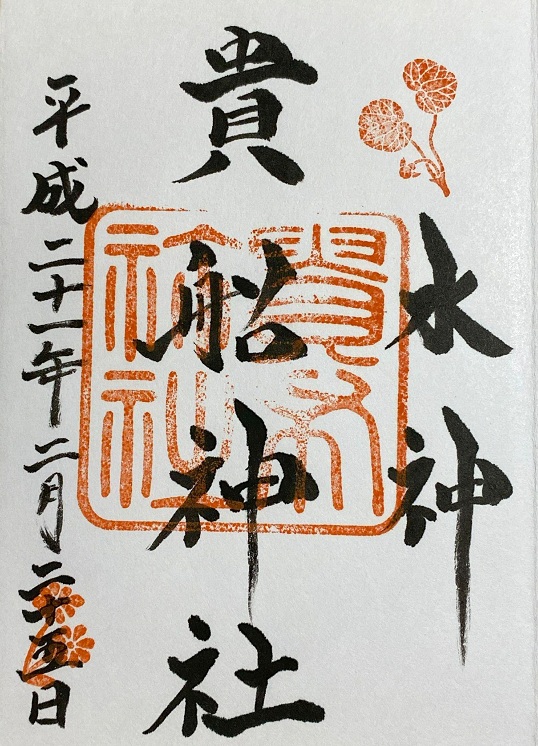 水神
貴船神社
平成二十一年二月二十五日